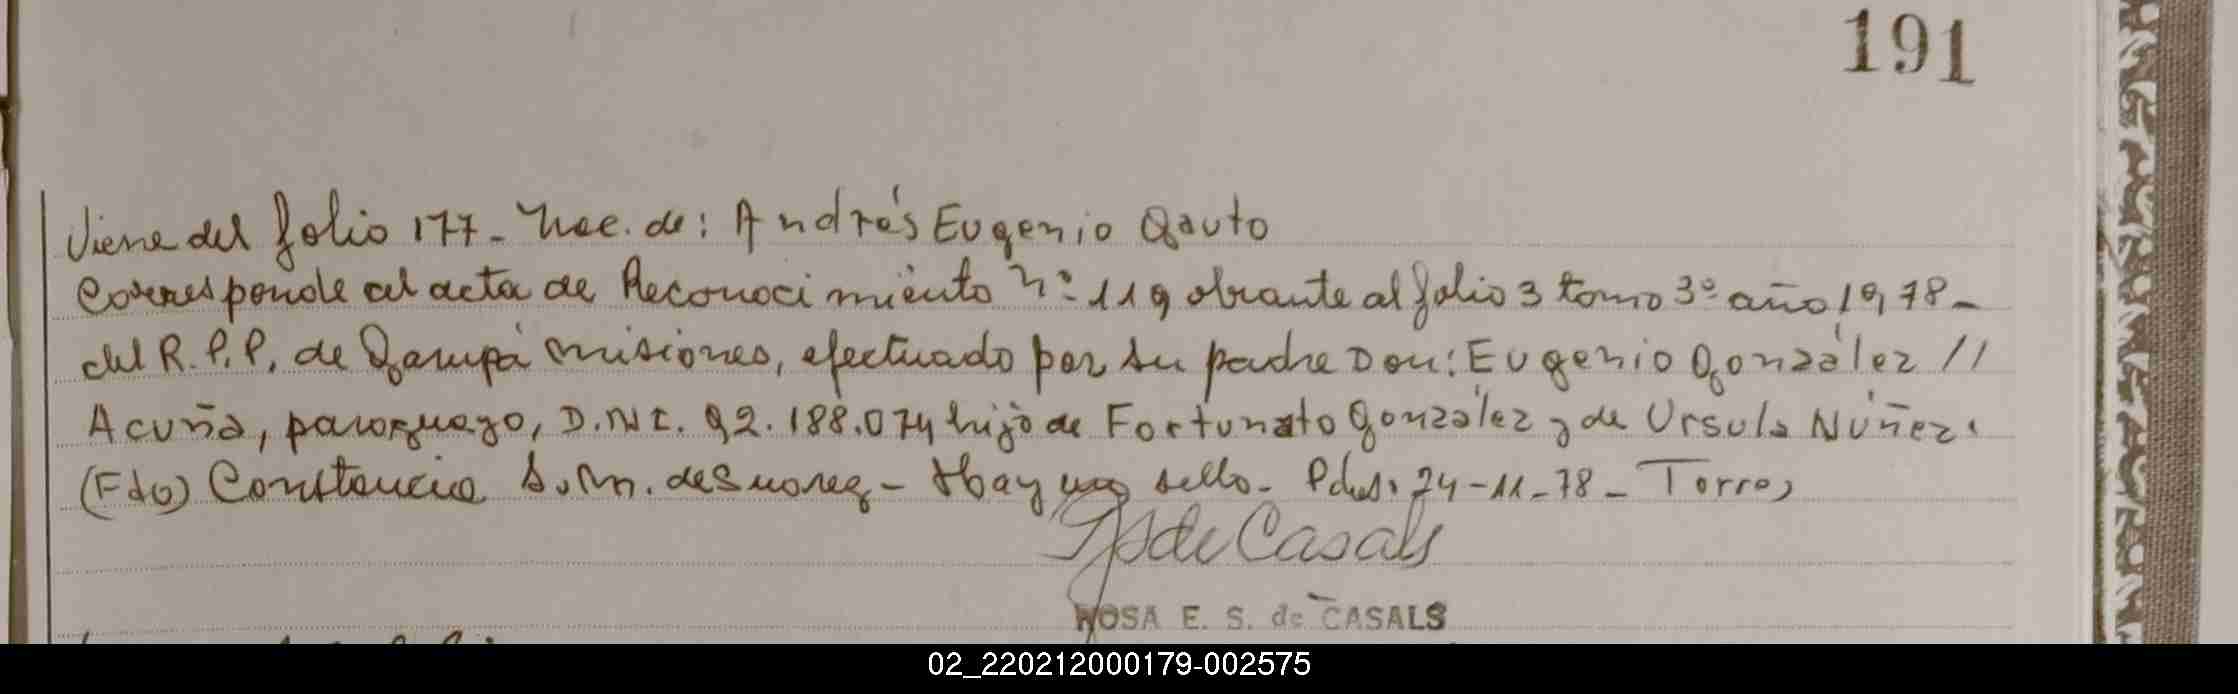 191
Viene del folio 177- Nac. de: Andrés Eugenio Gauto
Corresponde al acta de Reconocimiento Nº 119 obrante al folio 3 tomo 3º año 1978-
del R.P.P. de Garupá misiones, efectuado por su padre Don: Eugenio González //
Acuña, paraguayo, D.N.I. 92.188.074 hijo de Fortunato González y de Ursula Núñez.
(Fdo) Constancia S.M. de Suarez- Hay un sello- Pdas. 24-11-78- Torres
de Casals
ROSA E. S. de CASALS
02_220212000179-002575